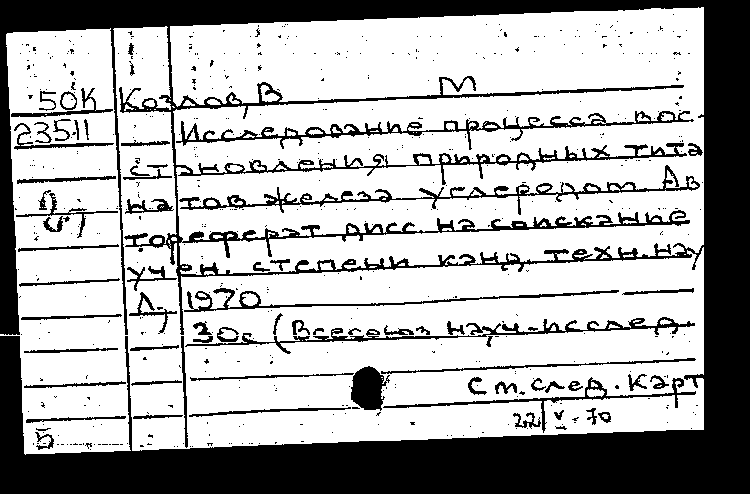 50К Козлов, В М
23511 Исследование процесса вос-
становления природных тита
натов железа углеродом. Ав
тореферат дисс. на соискание
учен. степени канд. техн. нау
Л, 1970
30с (Всесоюз научн.-исслед.
См. след. карт
22/V-70
5